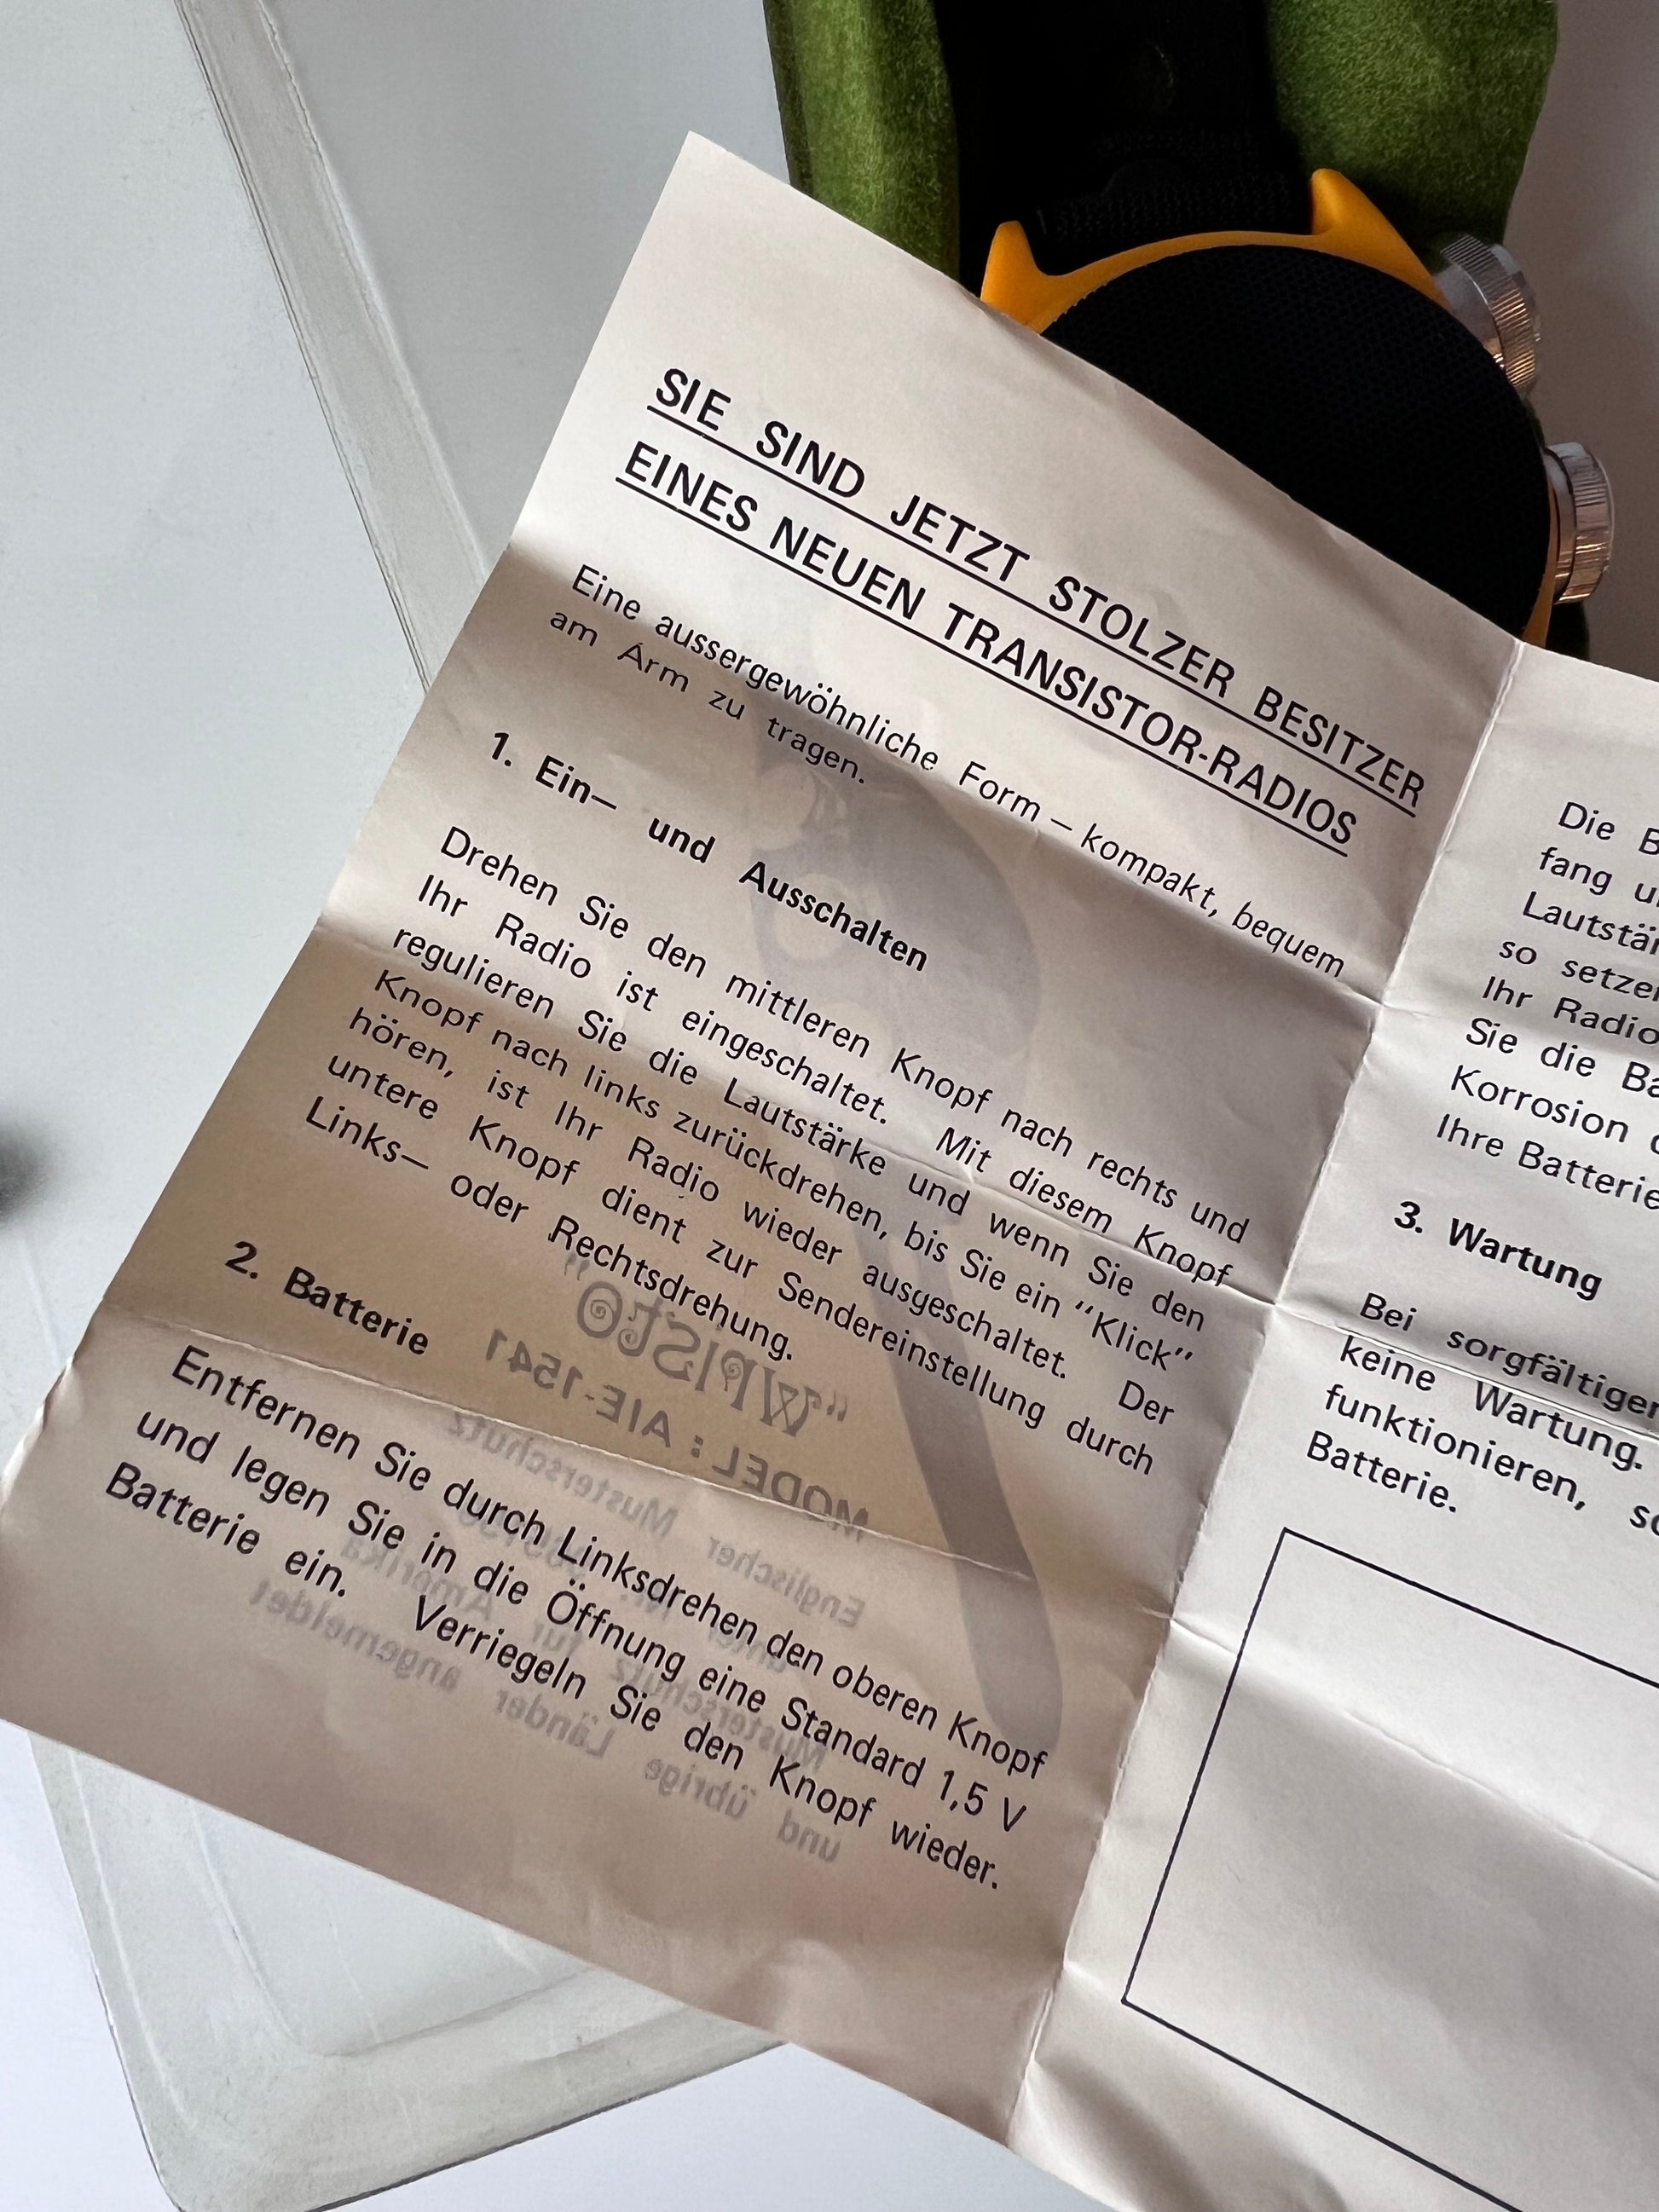 SIE SIND JETZT STOLZER BESITZER
EINES NEUEN TRANSISTOR-RADIOS
Eine aussergewöhnliche Form – kompakt, bequem
am Arm zu tragen.
1. Ein– und Ausschalten
Drehen Sie den mittleren Knopf nach rechts und
Ihr Radio ist eingeschaltet. Mit diesem Knopf
regulieren Sie die Lautstärke und wenn Sie den
Knopf nach links zurückdrehen, bis Sie ein "Klick"
hören, ist Ihr Radio wieder ausgeschaltet. Der
untere Knopf dient zur Sendereinstellung durch
Links– oder Rechtsdrehung.
2. Batterie
Entfernen Sie durch Linksdrehen den oberen Knopf
und legen Sie in die Öffnung eine Standard 1,5 V
Batterie ein. Verriegeln Sie den Knopf wieder.
Die B
fang u
Lautstär
so setze
Ihr Radio
Sie die Ba
Korrosion
Ihre Batterie
3. Wartung
Bei sorgfältiger
keine Wartung.
funktionieren, so
Batterie.
"Wristo"
MODEL : AIE-1541
Englischer Musterschutz
unter Nr.
Musterschutz für Amerika
und übrige Länder angemeldet